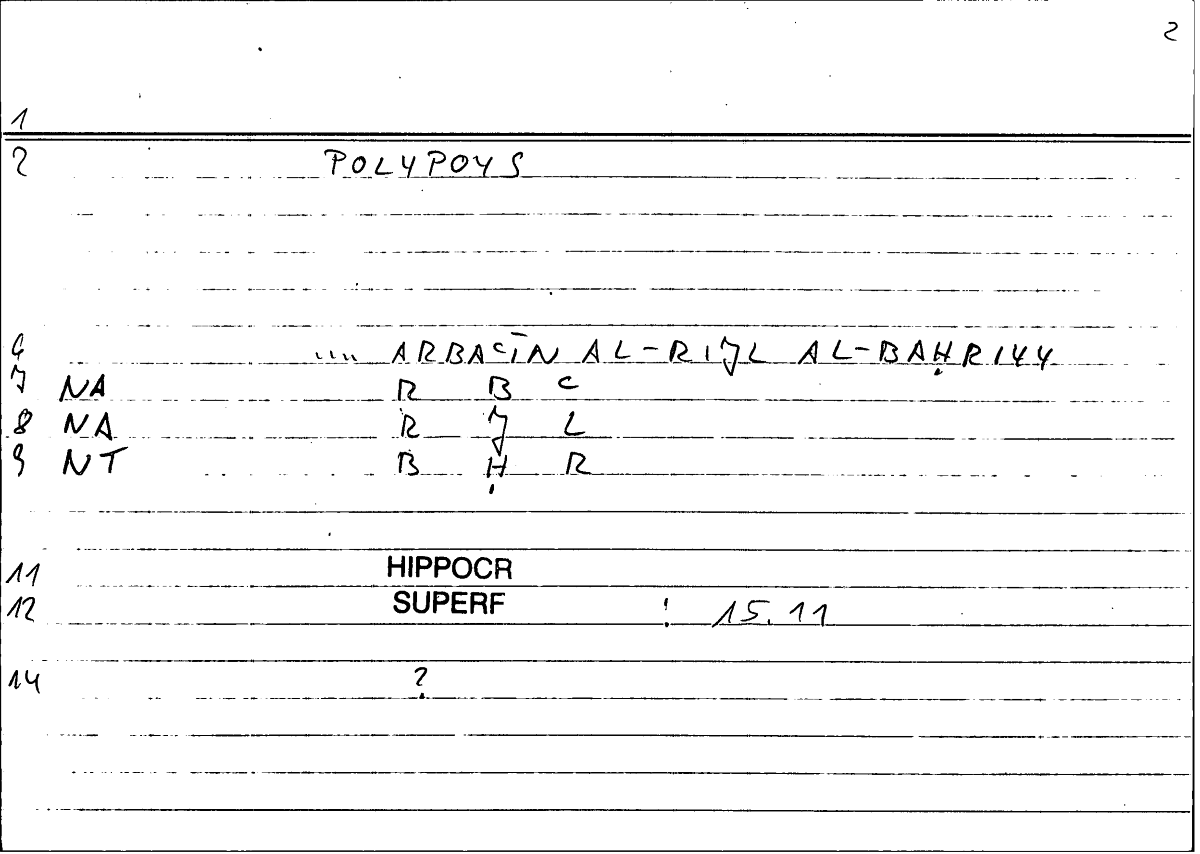 2
1
2 POLYPOYS
6 .... ARBAʿĪN AL-RIJL AL-BAḤRIYY
7 NA R B ʿ
8 NA R J L
9 NT B Ḥ R
11 HIPPOCR
12 SUPERF ! 15.11
14 ?